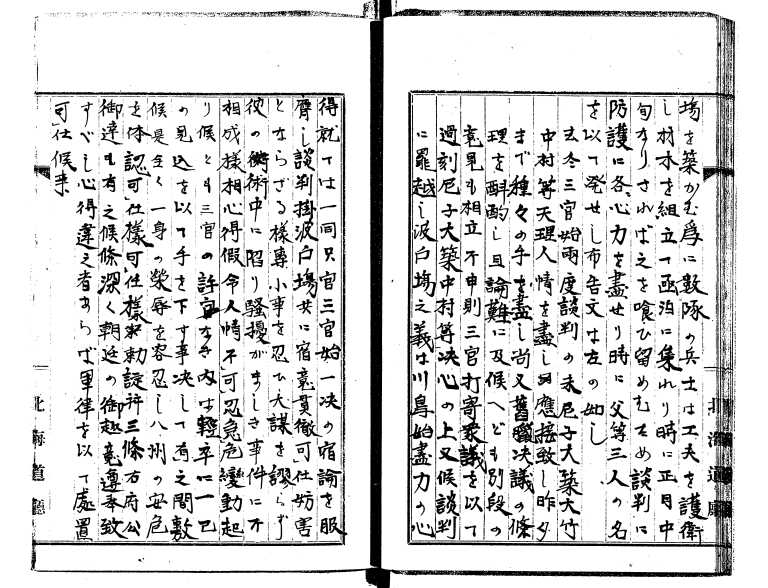 塲を築かむ爲に数隊の兵士は工夫を護衛
し材木を組立て函泊に集れり時に正月中
旬なりされば之を喰ひ留めむため談判に
防護に各心力を盡せり時に父等三人の名
を以て発せし布告文は左の如し
去冬三官始両度談判の末尼子大築大竹
中村等天理人情を盡し及應接致し昨夕
まで種々の手を盡し尚又舊臘决議の條
理を斟酌し且論難に及候へども別段の
意見も相立不申則三官打寄衆議を以て
過刻尼子大築中村等决心の上又候談判
に罷越し波白塲之義は川島始盡力の心
得就ては一同只官三官始一决の宿論を服
膺し談判掛波白塲共に宿意貫徹可仕妨害
とならざる様専小事を忍ひ大謀を謬らず
彼の術中に陥り騒擾がましき事件に不
相成様相心得假令人情不可忍危急變動起
り候とも三官の許宜なき内は輕卒に一己
の見込を以て手を下す事决して有之間敷
候是全く一身の榮辱を容忍し八州の安危
を体認可仕様可仕様勅諚并三條右府公
御達も有之候條深く朝廷の御趣意遵奉致
すべし心得違之者あらば軍律を以て處置
可仕候事
北海道廳
北海道廳